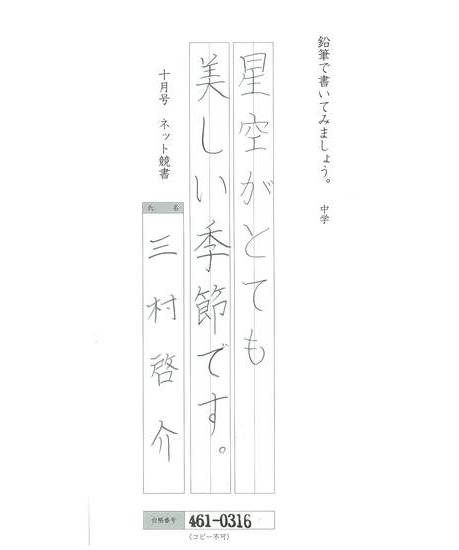 鉛筆で書いてみましょう。 中学
星空がとても
美しい季節です。
十月号 ネット競書
氏名
三村啓介
台帳番号 461-0316
(コピー不可)